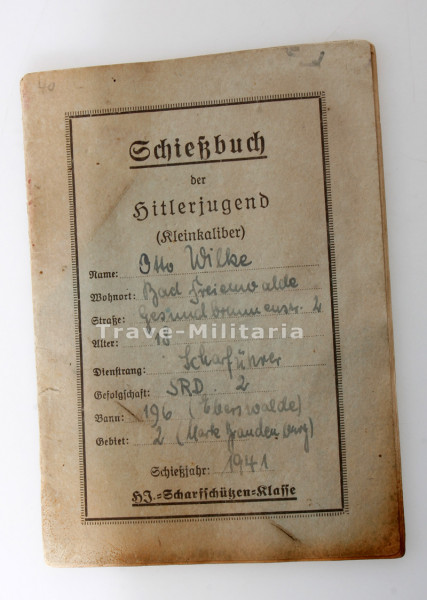 40
Schießbuch
der
Hitlerjugend
(Kleinkaliber)
Name: Otto Wilke
Wohnort: Bad Freienwalde
Straße: Gesundbrunnenstr. 2
Trave-Militaria
Alter: 18
Dienstrang: Scharführer
Gefolgschaft: SRD. 2
Bann: 196 (Eberswalde)
Gebiet: 2 (Mark Brandenburg)
Schießjahr: 1941
HJ.-Scharfschützen-Klasse